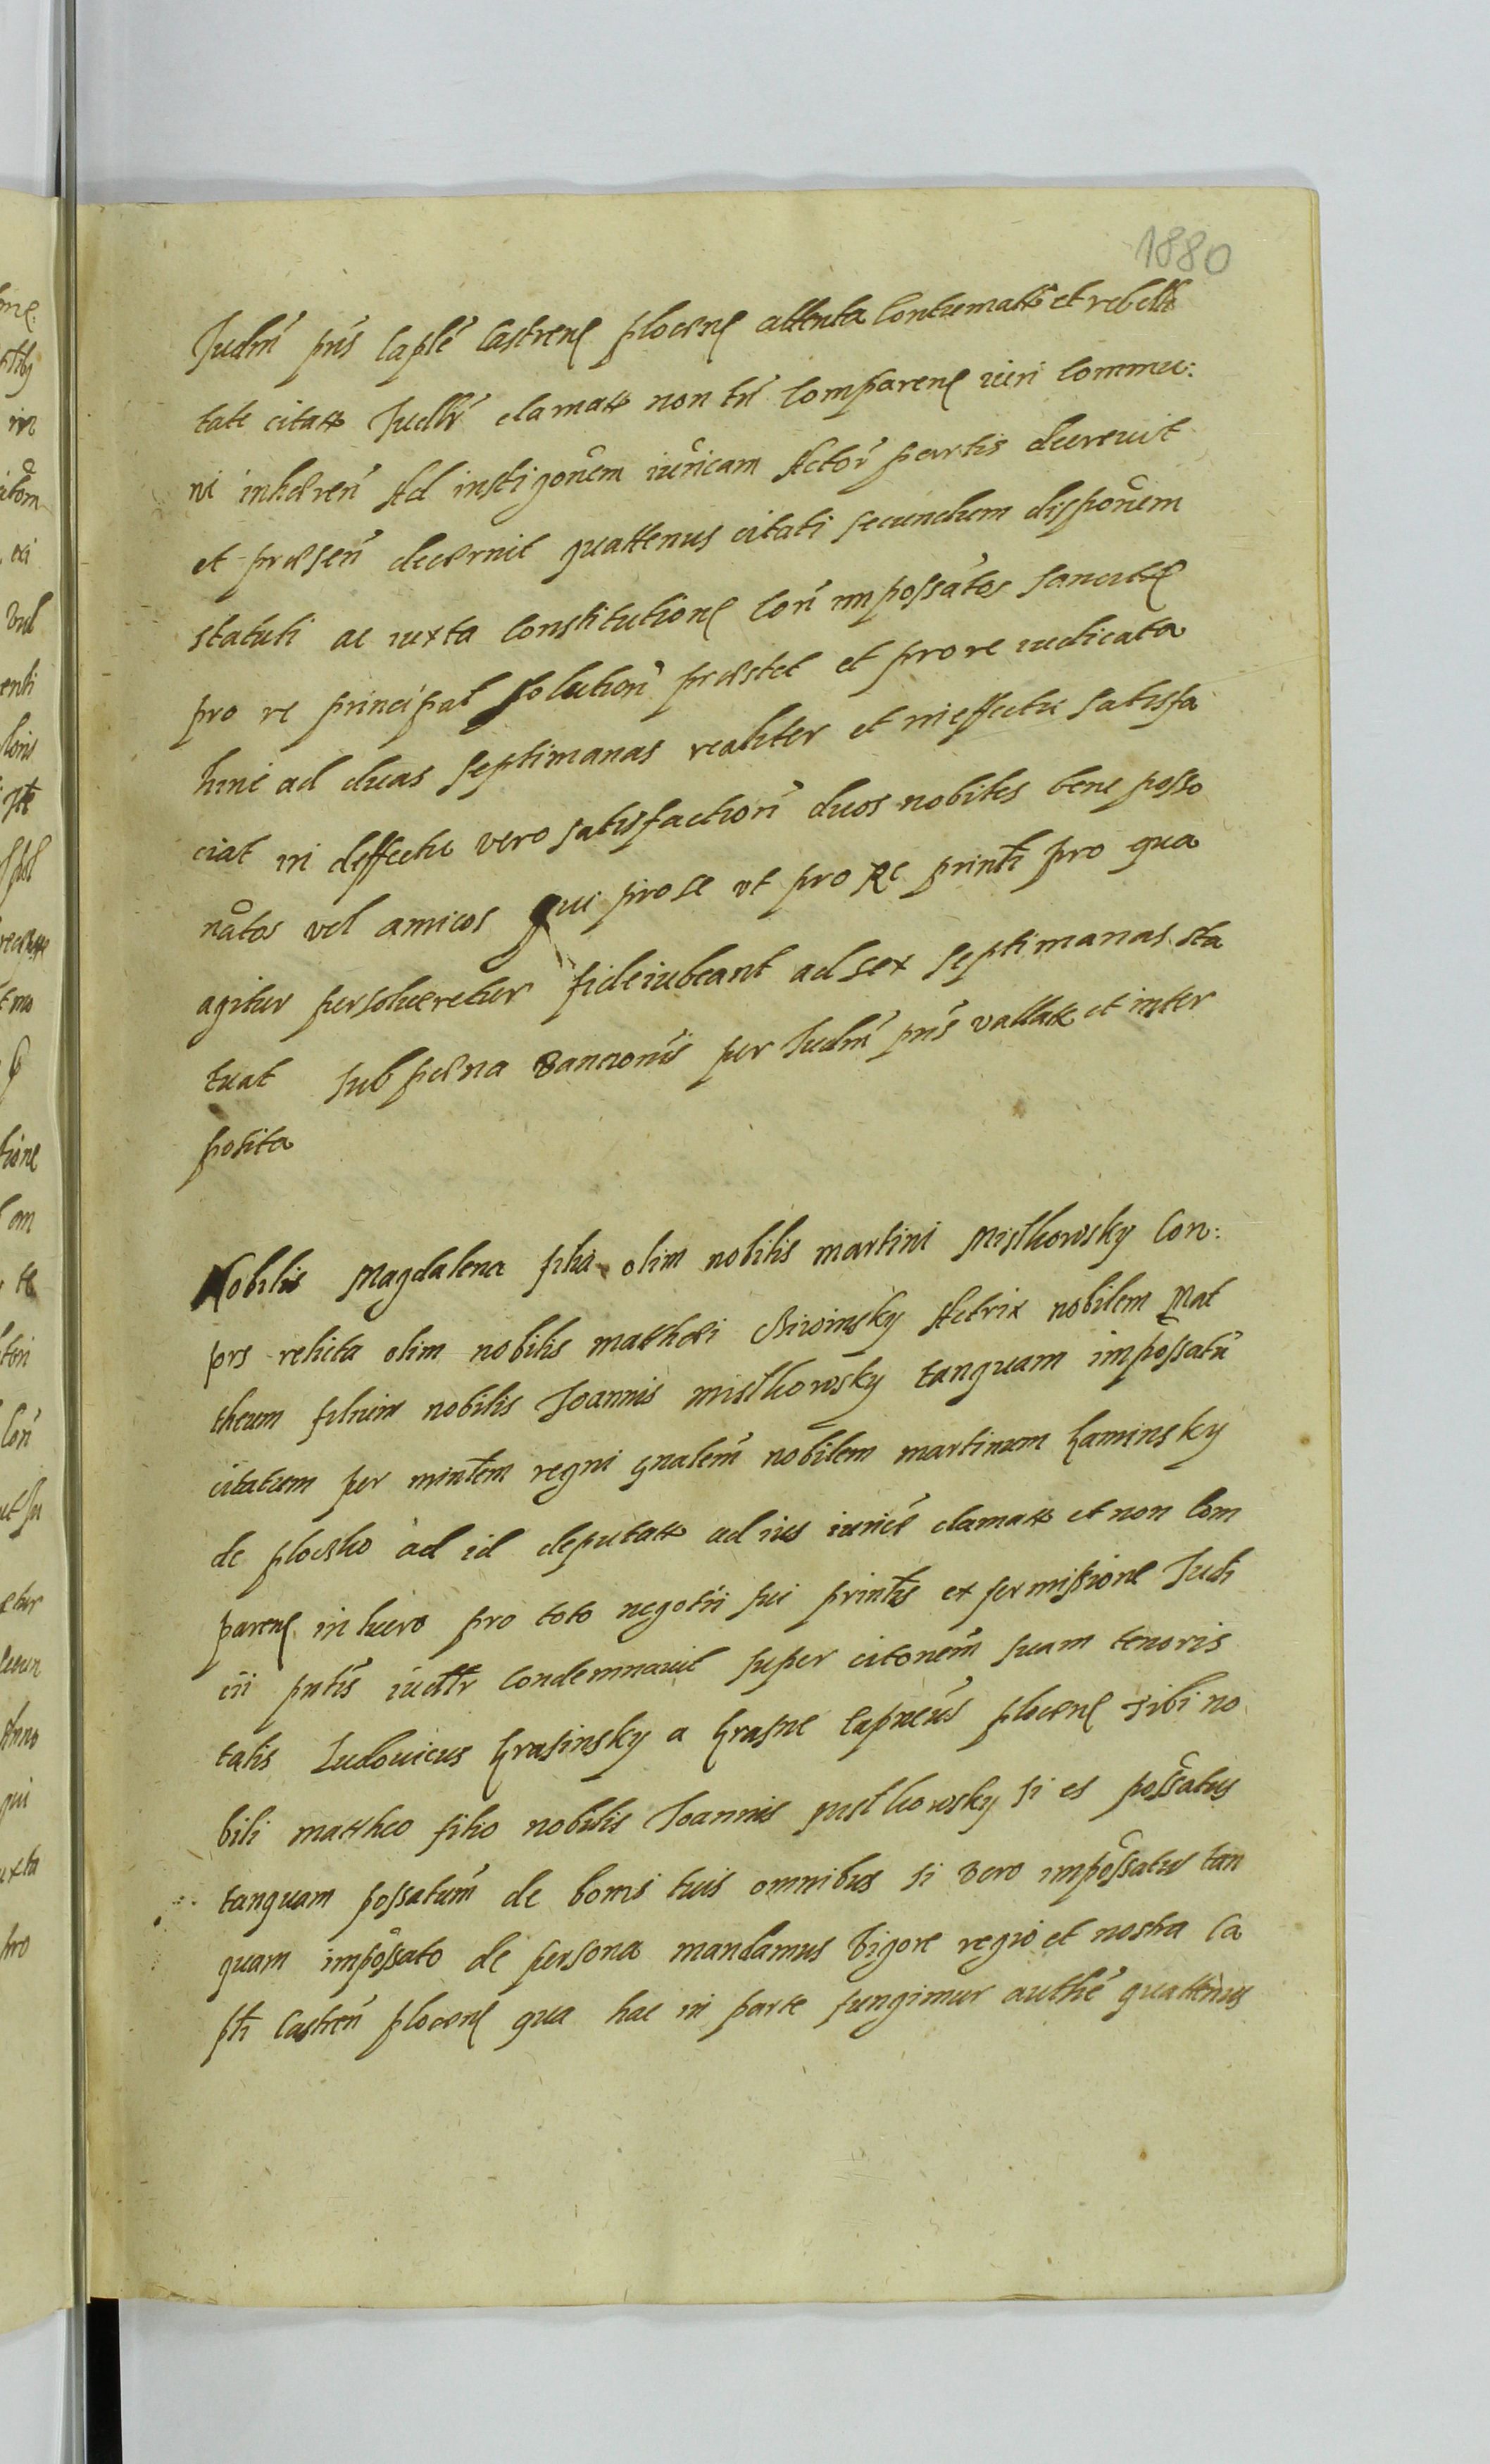 1880
Judm̃ pñs Caplẽ Castren̄ plocen̄ attenta Contumatt et rebell
tate citatt Judllr̃ clamatt non tñ Comparen̄ iuri Commu:
ni inhæren̄ Ad instigonem iuricam Actor̃ partis decreuit
et præsen̄ decernit quattenus citati secundum disponem
statuti ac iuxta Constitution̄ Con̄ impossatos sancitt
pro re principal solution̄ præstet et pro re iudicata
hinc ad duas septimanas realiter et in effectu satisfa
ciat in deffectu vero satisfaction̄ duos nobiles bene posso
natos vel amicos qui pro se vt pro re printi pro qua
agitur persolueretur fideiubeant ad sex septimanas sta
tuat sub pæna Sanconis per Judm̃ pñs vallatt et inter
posita
Nobilis Magdalena filia olim nobilis martini Mislkowsky Con:
pors relicta olim nobilis matthæi Actrix nobilem Mat
theum filium nobilis Joannis mislkowsky tanquam impossatũ
citatum per mintem regni gnalem̃ nobilem martinum Kaminsky
de plocsko ad id deputatt ad ius iurice clamatt et non Com
paren̄ in lucro pro toto negotii sui printis ex permissione Judi
cii pntis iudllr Condemnauit super citonem̃ suam tenoris
talis Ludouicus Krasinsky a Krasne Capneus plocen̄ tibi no
bili mattheo filio nobilis Joannis mislkowsky si es possatus
tanquam possatum̃ de bonis tuis omnibus si vero impossatus tan
quam impossato de persona mandamus Vigore regio et nostra Ca
pti Castren̄ plocen̄ qua hac in parte fungimur authẽ quattenus